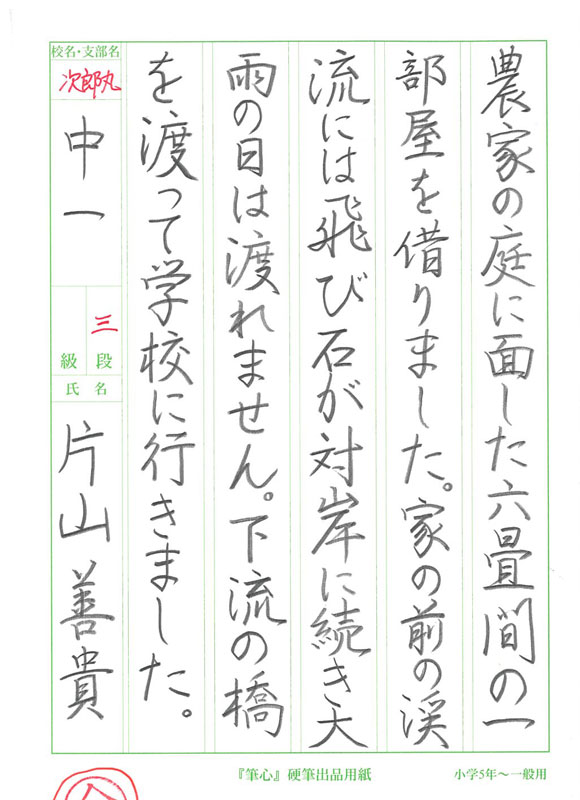 農家の庭に面した六畳間の一
部屋を借りました。家の前の渓
流には飛び石が対岸に続き大
雨の日は渡れません。下流の橋
を渡って学校に行きました。
校名・支部名
次郎丸
中一
三
段
級
氏名
片山善貴
『筆心』硬筆出品用紙
小学5年〜一般用